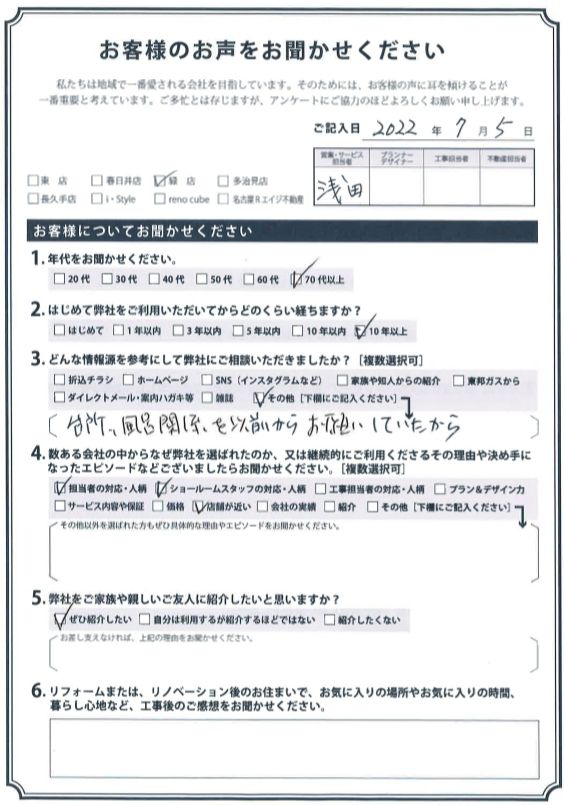 お客様のお声をお聞かせください
私たちは地域で一番愛される会社を目指しています。そのためには、お客様の声に耳を傾けることが
一番重要と考えています。ご多忙とは存じますが、アンケートにご協力のほどよろしくお願い申し上げます。
ご記入日 2022 年 7 月 5 日
営業・サービス担当者 プランナーデザイナー 工事担当者 不動産担当者
浅田
□東 店 □春日井店 ☑緑 店 □多治見店
□長久手店 □i・Style □reno cube □名古屋Rエイジ不動産
お客様についてお聞かせください
1. 年代をお聞かせください。
□20代 □30代 □40代 □50代 □60代 ☑70代以上
2. はじめて弊社をご利用いただいてからどのくらい経ちますか?
□はじめて □1年以内 □3年以内 □5年以内 □10年以内 ☑10年以上
3. どんな情報源を参考にして弊社にご相談いただきましたか?[複数選択可]
□折込チラシ □ホームページ □SNS(インスタグラムなど) □家族や知人からの紹介 □東邦ガスから
□ダイレクトメール・案内ハガキ等 □雑誌 ☑その他[下欄にご記入ください]
台所、風呂関係、を以前からお願いしていたから
4. 数ある会社の中からなぜ弊社を選ばれたのか、又は継続的にご利用くださるその理由や決め手に
なったエピソードなどございましたらお聞かせください。[複数選択可]
☑担当者の対応・人柄 ☑ショールームスタッフの対応・人柄 □工事担当者の対応・人柄 □プラン&デザイン力
□サービス内容や保証 □価格 ☑店舗が近い □会社の実績 □紹介 □その他[下欄にご記入ください]
その他以外を選ばれた方もぜひ具体的な理由やエピソードをお聞かせください。
5. 弊社をご家族や親しいご友人に紹介したいと思いますか?
☑ぜひ紹介したい □自分は利用するが紹介するほどではない □紹介したくない
お差し支えなければ、上記の理由をお聞かせください。
6. リフォームまたは、リノベーション後のお住まいで、お気に入りの場所やお気に入りの時間、
暮らし心地など、工事後のご感想をお聞かせください。